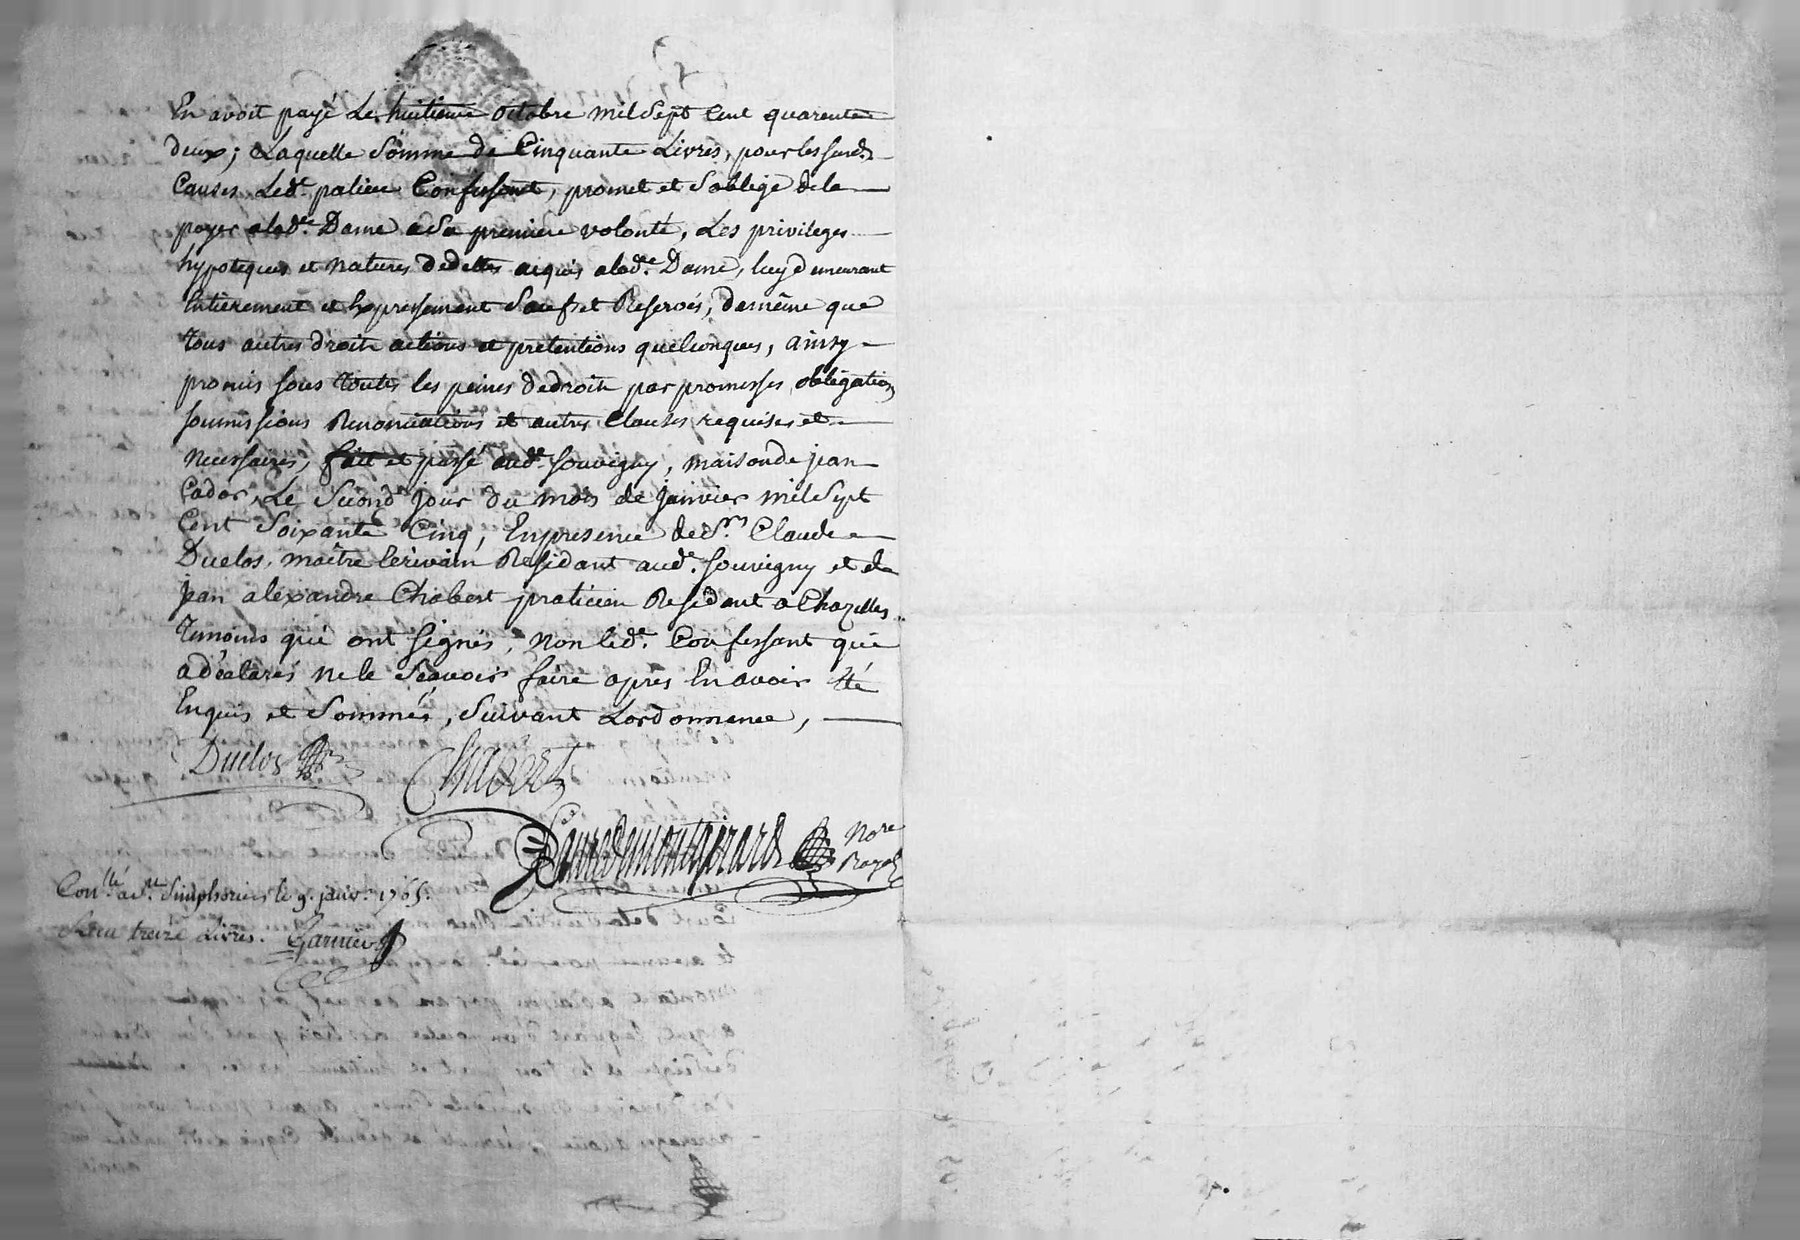 En avoit payé Le huitieme octobre mil Sept Cent quarente
deux; Laquelle Somme de Cinquante Livres, pour les susd.
Causes Led.t palieu Confessant, promet et Soblige de la
payer a lad.e Dame a Sa premiere volonté, Les privileges
hypoteques et natures dedettes acquis a lad.e Dame, luy demeurant
Entierement et Expressement Sauf et Reservés, de même que
tous autres droits actions et pretentions quelconques, ainsy
promis sous toutes les peines de droit par promesses obligations
soumissions Renonciations et autres Clauses requises et
necessaires, fait et passé aud.t souvigny, maison de jean
Cador, Le Second jour du mois de janvier mil Sept
Cent Soixante Cinq, En presence de S.rs Claude
Duclos, maître Ecrivain Residant aud.t souvigny et de
jean alexandre Chabert praticien Residant a Chazelles
temoins qui ont signés, non led.t Confessant qui
a déclarés ne le Scavoir faire apres En avoir été
Enquis et Sommés, Suivant Lordonnance,
Duclos Chabert
No.re
Royal
Con.llé a S.t Simphorien le 9. janv.r 1765.
Reçu treize Livres. Garnier